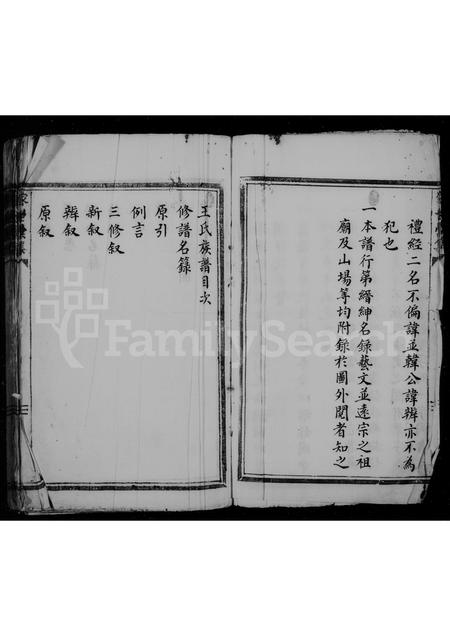 禮經二名不偏諱並韓公諱辨亦不為
犯也
一本譜行第縉紳名錄藝文並遠宗之祖
廟及山塲等均附錄於圖外閱者知之
王氏族譜目次
修譜名錄
原引
例言
三修叙
新叙
辨叙
原叙
FamilySearch